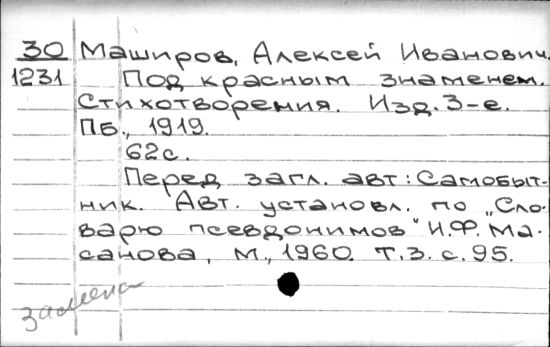 30 Маширов, Алексей Иванович.
1231 Под красным знаменем.
Стихотворения. Изд. 3-е.
Пб., 1919.
62с.
Перед загл. авт: Самобыт-
ник. Авт. установл. по „Сло-
варю псевдонимов" И.Ф. Ма-
санова, М., 1960. Т.3. с. 95.
замена